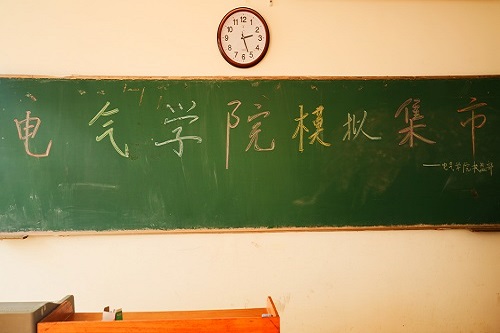 12
11 1
10 2
9 3
8 4
7 5
6
电气学院模拟集市
——电气学院